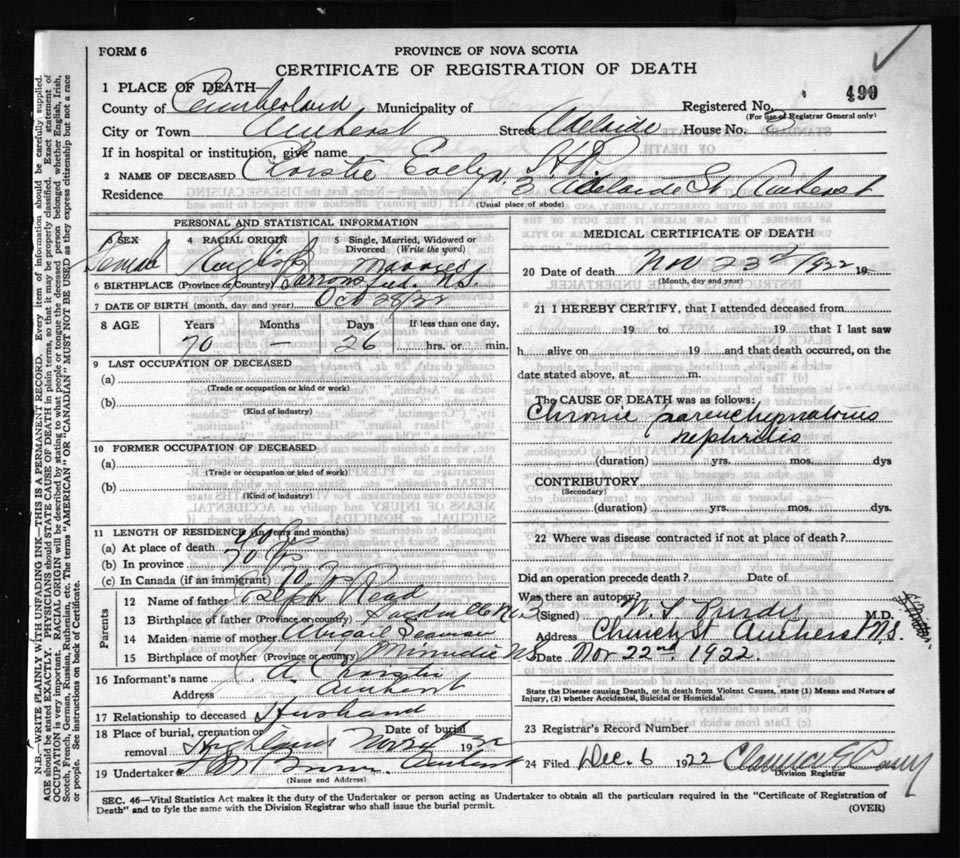 FORM 6
PROVINCE OF NOVA SCOTIA
CERTIFICATE OF REGISTRATION OF DEATH
499
1 PLACE OF DEATH—
County of Cumberland Municipality of Registered No.
(For use of Registrar General only)
City or Town Amherst Street Adelaide House No. 3
If in hospital or institution, give name
2 NAME OF DECEASED Christie Evelyn
Residence 3 Adelaide St. Amherst
(Usual place of abode)
PERSONAL AND STATISTICAL INFORMATION
3 SEX Female
4 RACIAL ORIGIN English
5 Single, Married, Widowed or Divorced (Write the word) Married
6 BIRTHPLACE (Province or Country) N.S.
7 DATE OF BIRTH (month, day and year) Oct 28/22
8 AGE Years Months Days If less than one day,
70 — 26 hrs. or min.
9 LAST OCCUPATION OF DECEASED
(a)
(Trade or occupation or kind or work)
(b)
(Kind of industry)
10 FORMER OCCUPATION OF DECEASED
(a)
(Trade or occupation or kind or work)
(b)
(Kind of industry)
11 LENGTH OF RESIDENCE (In years and months)
(a) At place of death
(b) In province 70 yrs
(c) In Canada (if an immigrant) 70
Parents
12 Name of father Read
13 Birthplace of father (Province or country)
14 Maiden name of mother Abigail Seaman
15 Birthplace of mother (Province or country) Minudie N.S.
16 Informant's name A. Christie
Address Amherst
17 Relationship to deceased Husband
18 Place of burial, cremation or removal Date of burial
Nov 1922
19 Undertaker Brown Amherst
(Name and Address)
MEDICAL CERTIFICATE OF DEATH
20 Date of death Nov 23rd 1922 19
(Month, day and year)
21 I HEREBY CERTIFY, that I attended deceased from
19 to 19 that I last saw
h alive on 19 and that death occurred, on the
date stated above, at m.
The CAUSE OF DEATH was as follows:
Chronic parenchymatous
nephritis
(duration) yrs. mos. dys
CONTRIBUTORY
(Secondary)
(duration) yrs. mos. dys
22 Where was disease contracted if not at place of death?
Did an operation precede death? Date of
Was there an autopsy?
(Signed) M.D.
Address Church St Amherst N.S.
Date Nov 22nd 1922
State the Disease causing Death, or in death from Violent Causes, state (1) Means and Nature of Injury, (2) whether Accidental, Suicidal or Homicidal.
23 Registrar's Record Number
24 Filed Dec. 6 1922
Division Registrar
SEC. 46—Vital Statistics Act makes it the duty of the Undertaker or person acting as Undertaker to obtain all the particulars required in the "Certificate of Registration of
Death" and to fyle the same with the Division Registrar who shall issue the burial permit.
(OVER)
N.B.—WRITE PLAINLY WITH UNFADING INK—THIS IS A PERMANENT RECORD. Every item of information should be carefully supplied.
AGE should be stated EXACTLY. PHYSICIANS should STATE CAUSE OF DEATH in plain terms, so that it may be properly classified. Exact statement of
OCCUPATION is very important. RACIAL ORIGIN will be described by stating to what people or tongue the deceased person belonged whether English, Irish,
Scotch, French, German, Russian, Ruthenian, etc. The terms "AMERICAN" or "CANADIAN" MUST NOT BE USED as they express citizenship but not a race
or people. See instructions on back of Certificate.